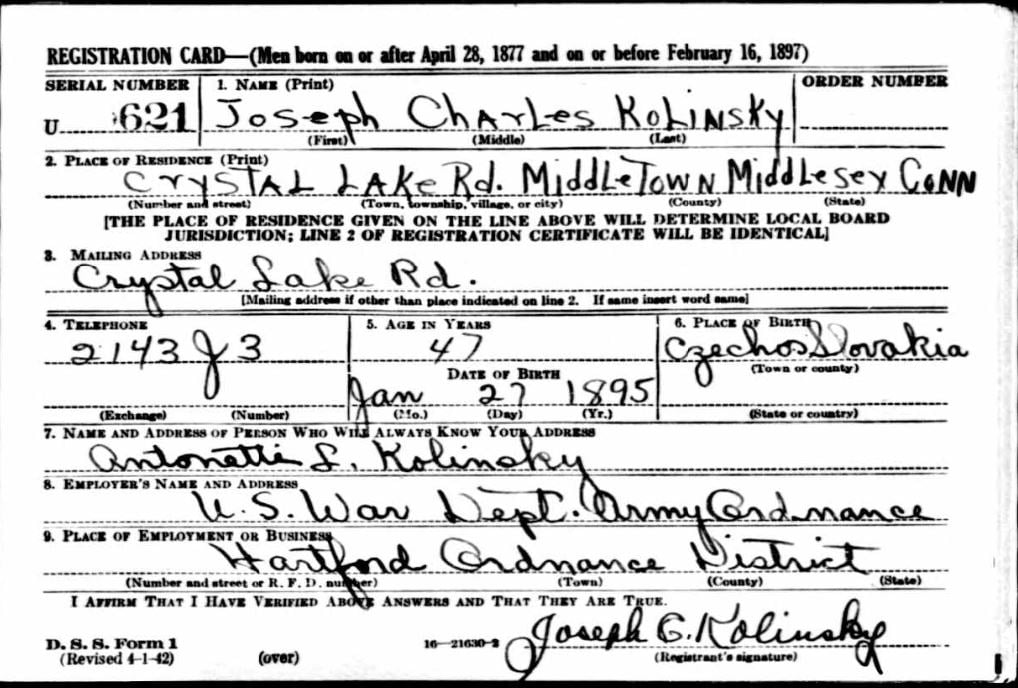 REGISTRATION CARD—(Men born on or after April 28, 1877 and on or before February 16, 1897)
SERIAL NUMBER 1. NAME (Print) ORDER NUMBER
U 621 Joseph Charles Kolinsky
(First) (Middle) (Last)
2. PLACE OF RESIDENCE (Print)
Crystal Lake Rd. Middletown Middlesex Conn
(Number and street) (Town, township, village, or city) (County) (State)
[THE PLACE OF RESIDENCE GIVEN ON THE LINE ABOVE WILL DETERMINE LOCAL BOARD
JURISDICTION; LINE 2 OF REGISTRATION CERTIFICATE WILL BE IDENTICAL]
3. MAILING ADDRESS
Crystal Lake Rd.
[Mailing address if other than place indicated on line 2. If same insert word same]
4. TELEPHONE 5. AGE IN YEARS 6. PLACE OF BIRTH
2143 J 3 47 Czechoslovakia
DATE OF BIRTH (Town or county)
Jan 27 1895
(Exchange) (Number) (Mo.) (Day) (Yr.) (State or country)
7. NAME AND ADDRESS OF PERSON WHO WILL ALWAYS KNOW YOUR ADDRESS
Antonette L. Kolinsky
8. EMPLOYER'S NAME AND ADDRESS
U. S. War Dept. Army Ordnance
9. PLACE OF EMPLOYMENT OR BUSINESS
Hartford Ordnance District
(Number and street or R. F. D. number) (Town) (County) (State)
I AFFIRM THAT I HAVE VERIFIED ABOVE ANSWERS AND THAT THEY ARE TRUE.
D. S. S. Form 1 16—21630-2 Joseph C. Kolinsky
(Revised 4-1-42) (over) (Registrant's signature)